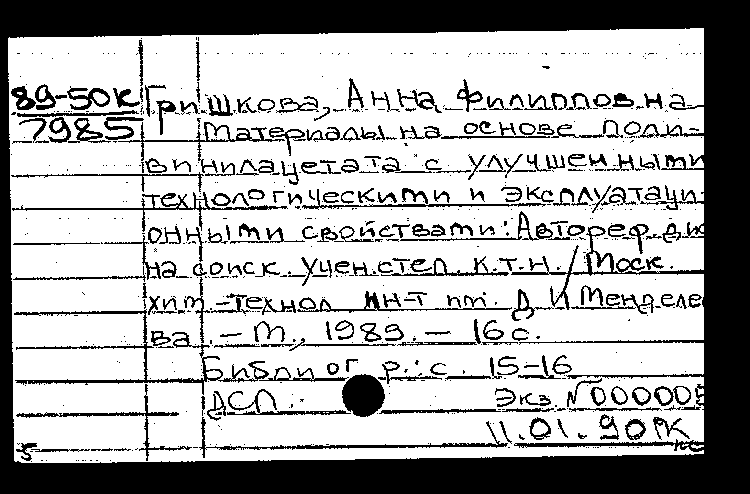 89-50К Гришкова, Анна Филипповна
7985 Материалы на основе поли-
винилацетата с улучшенными
технологическими и эксплуатаци-
онными свойствами: Автореф. дис
на соиск. учен. степ. к.т.н. / Моск.
хим.-технол ин-т им. Д И Менделее
ва. - М., 1989. - 16 с.
Библиогр.: с. 15-16
ДСП. Экз. №000005
11.01.90 РК
5